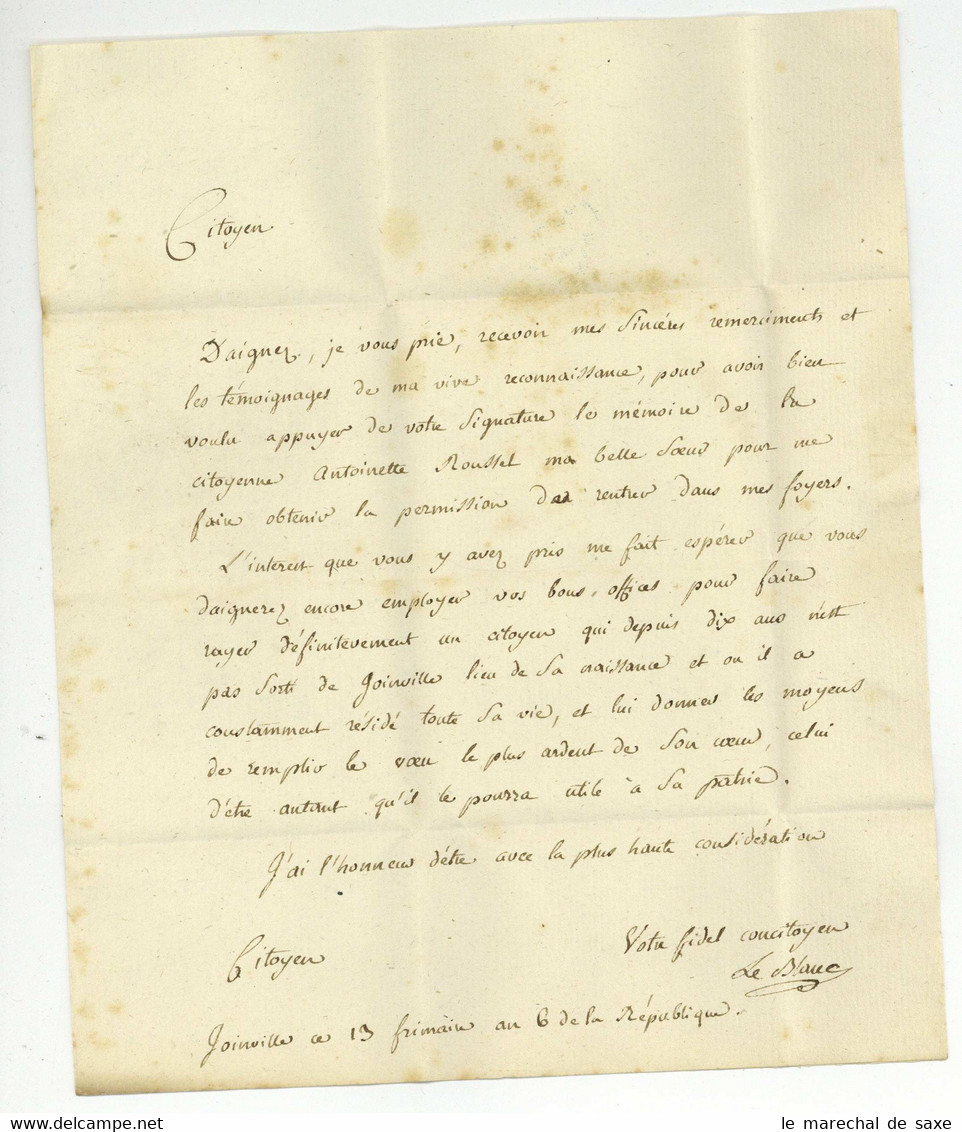 Citoyen
Daignez, je vous prie, recevoir mes sincères remerciments et
les témoignages de ma vive reconnaissance, pour avoir bien
voulu appuyer de votre signature le mémoire de la
citoyenne Antoinette Roussel ma belle sœur pour me
faire obtenir la permission de rentrer dans mes foyers.
L'interêt que vous y avez pris me fait espérer que vous
daignerez encore employer vos bons offices pour faire
rayer définitevement un citoyen qui depuis dix ans n'est
pas sorti de Joinville lieu de sa naissance et ou il a
constamment résidé toute sa vie, et lui donner les moyens
de remplir le vœu le plus ardent de son cœur, celui
d'etre autant qu'il le pourra utile à sa patrie.
J'ai l'honneur d'être avec la plus haute considération
Citoyen
Votre fidel concitoyen
Le Blanc
Joinville ce 13 frimaire an 6 de la République.
le marechal de saxe